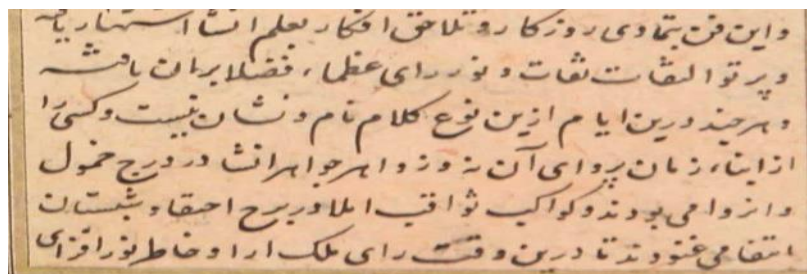 واین فن بتمادی روزکار و تلاحق افکار بعلم انشا اشتهار یافته
و پرتو التفات ثقات و نور رای عظماء فضلا بران تافته
و هرچند درین ایام ازین نوع کلام نام و نشان نیست و کسی را
از ابناء زمان پروای آن نه و زواهر جواهر انشا در درج خمول
و انزوا می بودند و کواکب ثواقب املا در برج احتفا و شبستان
انتفا می غنودند تا درین وقت رای ملک ارا و خاطر نور افزای